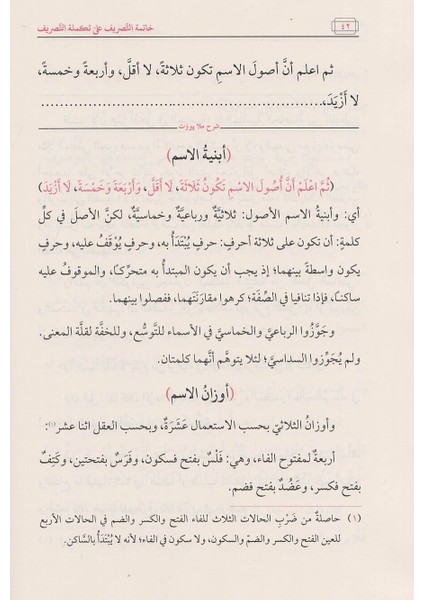 ٤٢
خاتمة التَّصريف على تكملة التَّصريف
ثم اعلم أنَّ أصولَ الاسمِ تكون ثلاثةً، لا أقلَّ، وأربعةً وخمسةً،
لا أَزْيَدَ، ..........
شرح ملا پيروزت
(أبنيةُ الاسم)
(ثُمَّ اعْلَمْ أَنَّ أُصُولَ الاسْمِ تَكُونُ ثَلَاثَةً، لَا أَقَلَّ، وَأَرْبَعَةً وَخَمْسَةً، لَا أَزْيَدَ)
أي: وأبنيةُ الاسم الأصول: ثلاثيَّةٌ ورباعيَّةٌ وخماسيَّةٌ، لكنَّ الأصلَ في كلِّ
كلمةٍ: أن تكون على ثلاثة أحرفٍ: حرفٍ يُبْتَدَأُ به، وحرفٍ يُوْقَفُ عليه، وحرفٍ
يكون واسطةً بينهما؛ إذ يجب أن يكون المبتدأُ به متحركًا، والموقوفُ عليه
ساكنًا، فإذا تنافيا في الصِّفَة؛ كرهوا مقارنَتَهما، ففصلوا بينهما.
وجَوَّزُوا الرباعيَّ والخماسيَّ في الأسماء للتَّوسُّع، وللخفَّة لقلَّة المعنى.
ولم يُجَوِّزوا السداسيَّ؛ لئلا يتوهَّم أنَّهما كلمتان.
(أوزانُ الاسم)
وأوزانُ الثلاثيِّ بحسب الاستعمال عَشَرَةٌ، وبحسب العقل اثنا عشر(١):
أربعةٌ لمفتوح الفاء، وهي: فَلْسٌ بفتح فسكون، وفَرَسٌ بفتحتين، وكَتِفٌ
بفتح فكسر، وعَضُدٌ بفتح فضم.
(١) حاصلةٌ من ضَرْبِ الحالات الثلاث للفاء الفتح والكسر والضم في الحالات الأربع
للعين الفتح والكسر والضمِّ والسكون، ولا سكون في الفاء؛ لأنه لا يُبْتَدَأُ بالسَّاكن.